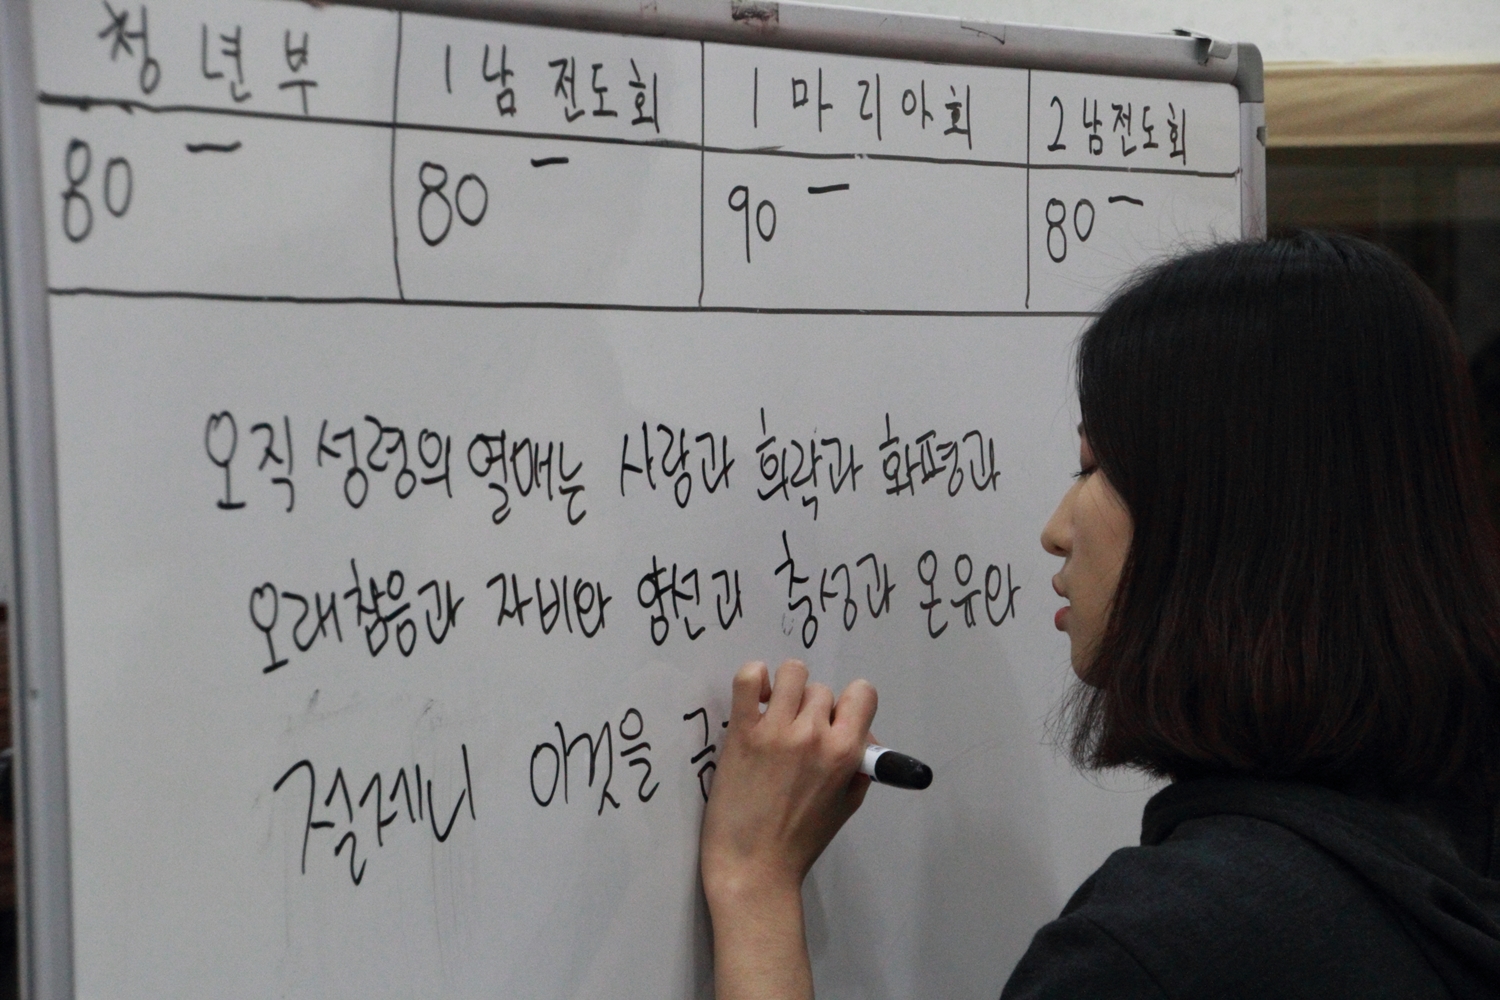 청년부 1남전도회 1마리아회 2남전도회
80 - 80 - 90 - 80 -
오직 성령의 열매는 사랑과 희락과 화평과
오래참음과 자비와 양선과 충성과 온유와
절제니 이것을 금